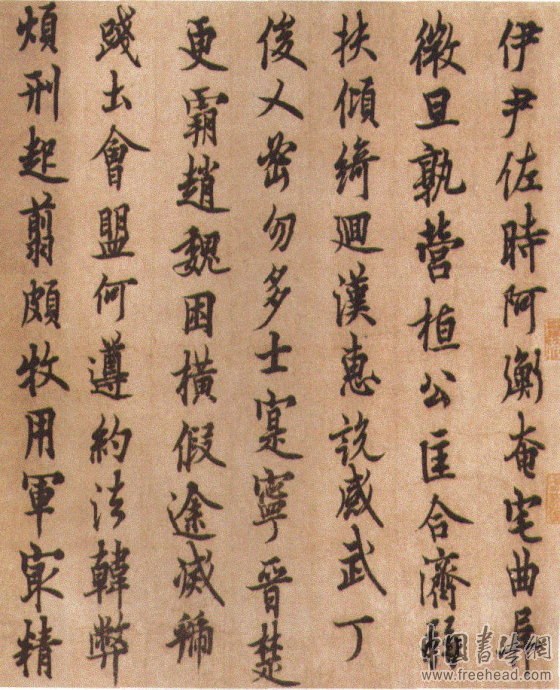 伊尹佐時阿衡奄宅曲阜
微旦孰營桓公匡合濟弱
扶傾綺迴漢惠說感武丁
俊乂密勿多士寔寧晉楚
更霸趙魏困橫假途滅虢
踐土會盟何遵約法韓弊
煩刑起翦頗牧用軍最精
中国書法網
www.freehead.com